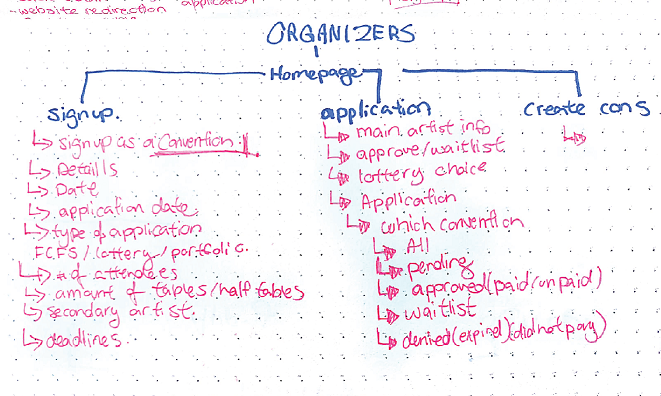 application
-website redirection
ORGANIZERS
Homepage
signup.
signup as a Convention
Detaills
Date
application date.
type of application
FCFS/lottery/portfolio.
# of attendees
amount of tables/half tables
secondary artist.
deadlines
application
main artist info
approve/waitlist
lottery choice
Application
which convention
All
pending
approved(paid/unpaid)
waitlist
denied(expired)didnotpay)
Create cons